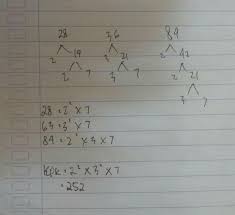 28 36 84
2 19 3 21 2 42
2 7 3 7 2 21
3 7
28 = 2² × 7
63 = 3² × 7
84 = 2² × 3 × 7
KPK = 2² × 3² × 7
= 252